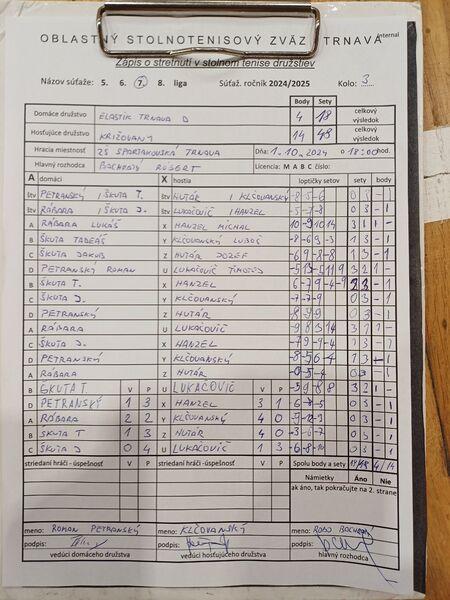 OBLASTNÝ STOLNOTENISOVÝ ZVÄZ TRNAVA
Internal
Zápis o stretnutí v stolnom tenise družstiev
Názov súťaže: 5. 6. 7. 8. liga Súťaž. ročník 2024/2025 Kolo: 3
Body Sety
Domáce družstvo ELASTIK TRNAVA D 4 18 celkový výsledok
Hosťujúce družstvo KRIŽOVANY 14 48 celkový výsledok
Hracia miestnosť ZŠ SPARTAKOVSKÁ TRNAVA Dňa: 1.10.2024 o 18:00 hod.
Hlavný rozhodca BACHRATÝ ROBERT Licencia: M A B C číslo:
A domáci X hostia loptičky setov sety body
štv PETRANSKÝ / ŠKUTA T. štv HUTÁR / KLČOVANSKÝ -8 -5 -6 0 3 - 1
štv RÁBARA / ŠKUTA J. štv LUKAČOVIČ / HANZEL 0 3 - 1
A RÁBARA LUKÁŠ X HANZEL MICHAL 3 1 1 -
B ŠKUTA TADEÁŠ Y KLČOVANSKÝ ĽUBOŠ -8 -6 3 -3 1 3 - 1
C ŠKUTA JAKUB Z HUTÁR JOZEF -6 9 -8 -8 1 3 - 1
D PETRANSKÝ ROMAN U LUKAČOVIČ TIMOTEJ 3 2 1 -
B ŠKUTA T. X HANZEL 6 -7 9 -4 -9 2 3 - 1
C ŠKUTA J. Y KLČOVANSKÝ -7 -7 -9 0 3 - 1
D PETRANSKÝ Z HUTÁR 0 3 - 1
A RÁBARA U LUKAČOVIČ 3 1 1 -
C ŠKUTA J. X HANZEL 1 3 - 1
D PETRANSKÝ Y KLČOVANSKÝ 1 3 - 1
A RÁBARA Z HUTÁR 0 3 - 1
B ŠKUTA T V P U LUKAČOVIČ V P -5 9 -6 8 8 3 2 1 -
D PETRANSKÝ 1 3 X HANZEL 3 1 0 3 - 1
A RÁBARA 2 2 Y KLČOVANSKÝ 4 0 0 3 - 1
B ŠKUTA T 1 3 Z HUTÁR 4 0 0 3 - 1
C ŠKUTA J 0 4 U LUKAČOVIČ 1 3 0 3 - 1
striedaní hráči - úspešnosť V P striedaní hráči - úspešnosť V P Spolu body a sety 18/48 4/14
Námietky Áno Nie
ak áno, tak pokračujte na 2. strane
meno: ROMAN PETRANSKÝ meno: KLČOVANSKÝ meno: ROBO BACHRATÝ
podpis: podpis: podpis:
vedúci domáceho družstva vedúci hosťujúceho družstva hlavný rozhodca